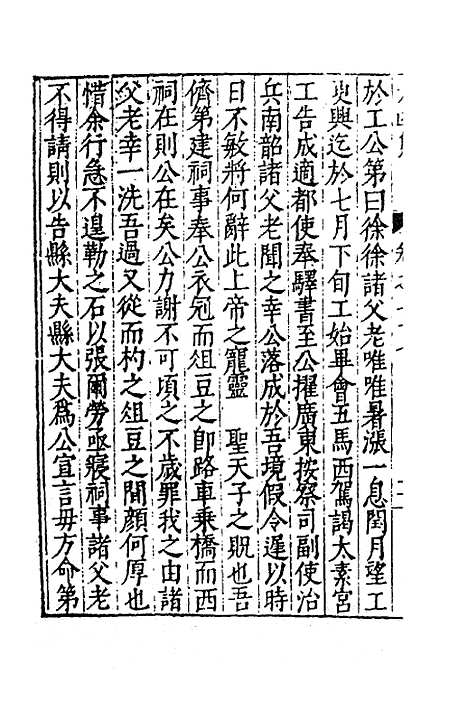 於工公第曰徐徐諸父老唯唯暑漲一息閏月望工
臾興迄於七月下旬工始畢會五馬西駕謁太素宮
工告成適都使奉驛書至公擢廣東按察司副使治
兵南韶諸父老聞之幸公落成於吾境假令遲以時
日不敏將何辭此上帝之寵靈　聖天子之貺也吾
儕第建祠事奉公衣冠而俎豆之即路車乘橋而西
祠在則公在矣公力謝不可頃之不歲罪我之由諸
父老幸一洗吾過又從而杓之俎豆之間顏何厚也
惜余行急不遑勒之石以張爾勞亟寢祠事諸父老
不得請則以告縣大夫縣大夫為公宣言毋方命第